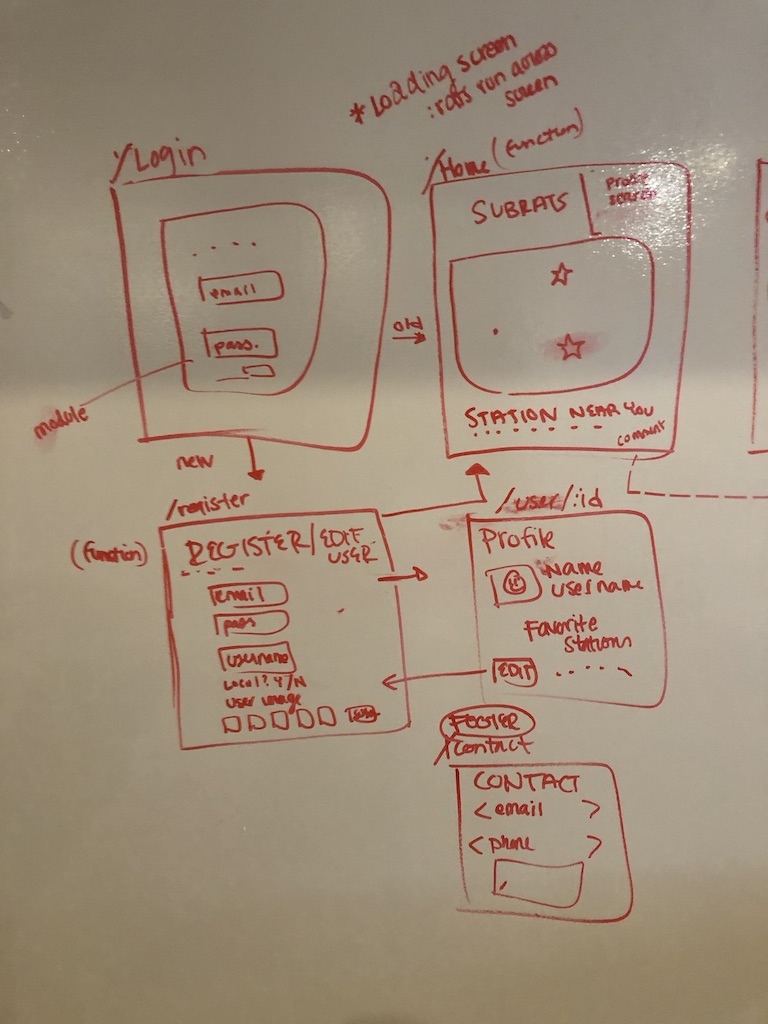 * Loading screen
: rats run across
screen
/Login
email
pass.
module
old
new
/Home (function)
SUBRATS
Profile
screen
STATION NEAR YOU
comment
/register
(function)
REGISTER/EDIT
USER
email
pass
username
Local? Y/N
user image
/user/:id
Profile
Name
username
Favorite
Stations
EDIT
FOOTER
/contact
CONTACT
< email >
< phone >